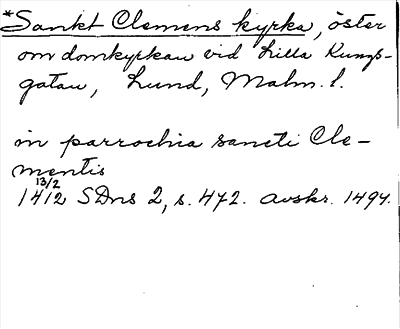 *Sankt Clemens kyrka, öster
om domkyrkan vid Lilla Kungs-
gatan, Lund, Malm. l.
in parrochia sancti Cle-
mentis
13/2
1412 SDns 2, s. 472. avskr. 1494.